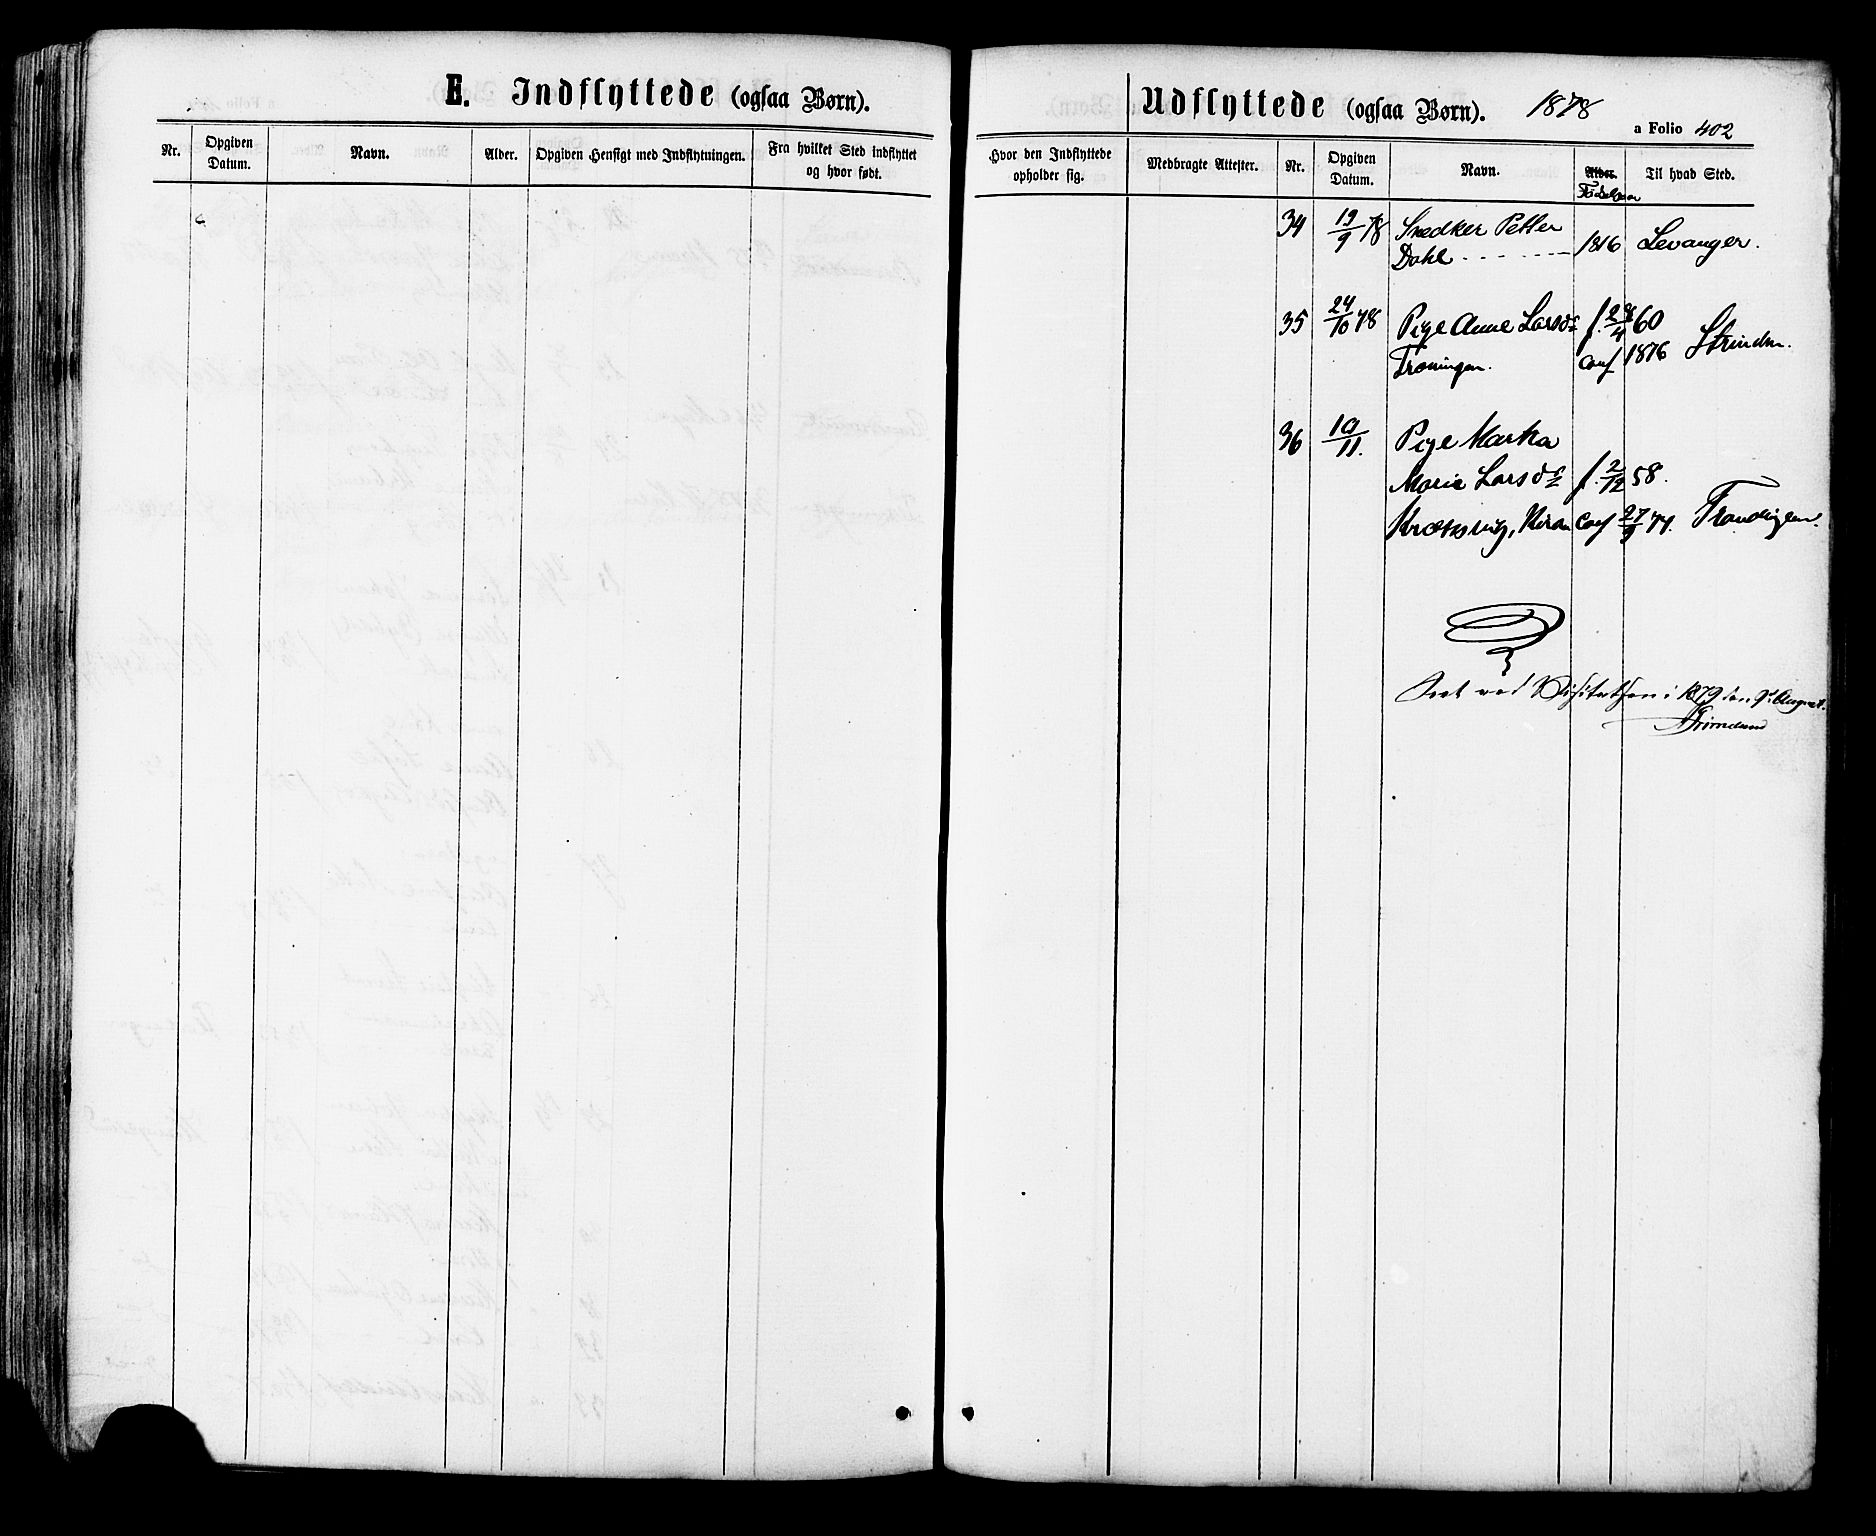 E. Indflyttede (ogsaa Børn).
Nr. Opgiven Datum. Navn. Alder. Opgiven Hensigt med Indflytningen. Fra hvilket Sted indflyttet og hvor født.
Udflyttede (ogsaa Børn). 1878
a Folio 402
Hvor den Indflyttede opholder sig. Medbragte Attester. Nr. Opgiven Datum. Navn. Alder. Til hvad Sted.
34 19/9 78 Snedker Petter
Dahl 1816 Levanger.
35 24/10 78 Pige Anne Larsd. f. 28/4 60
conf 1876 Strinden.
36 10/11. Pige Martha
Marie Larsd. f. 2/12 58.
conf 27/9 74.
Seet ved Visitatsen i 1879 den 9de August.
Grimelund